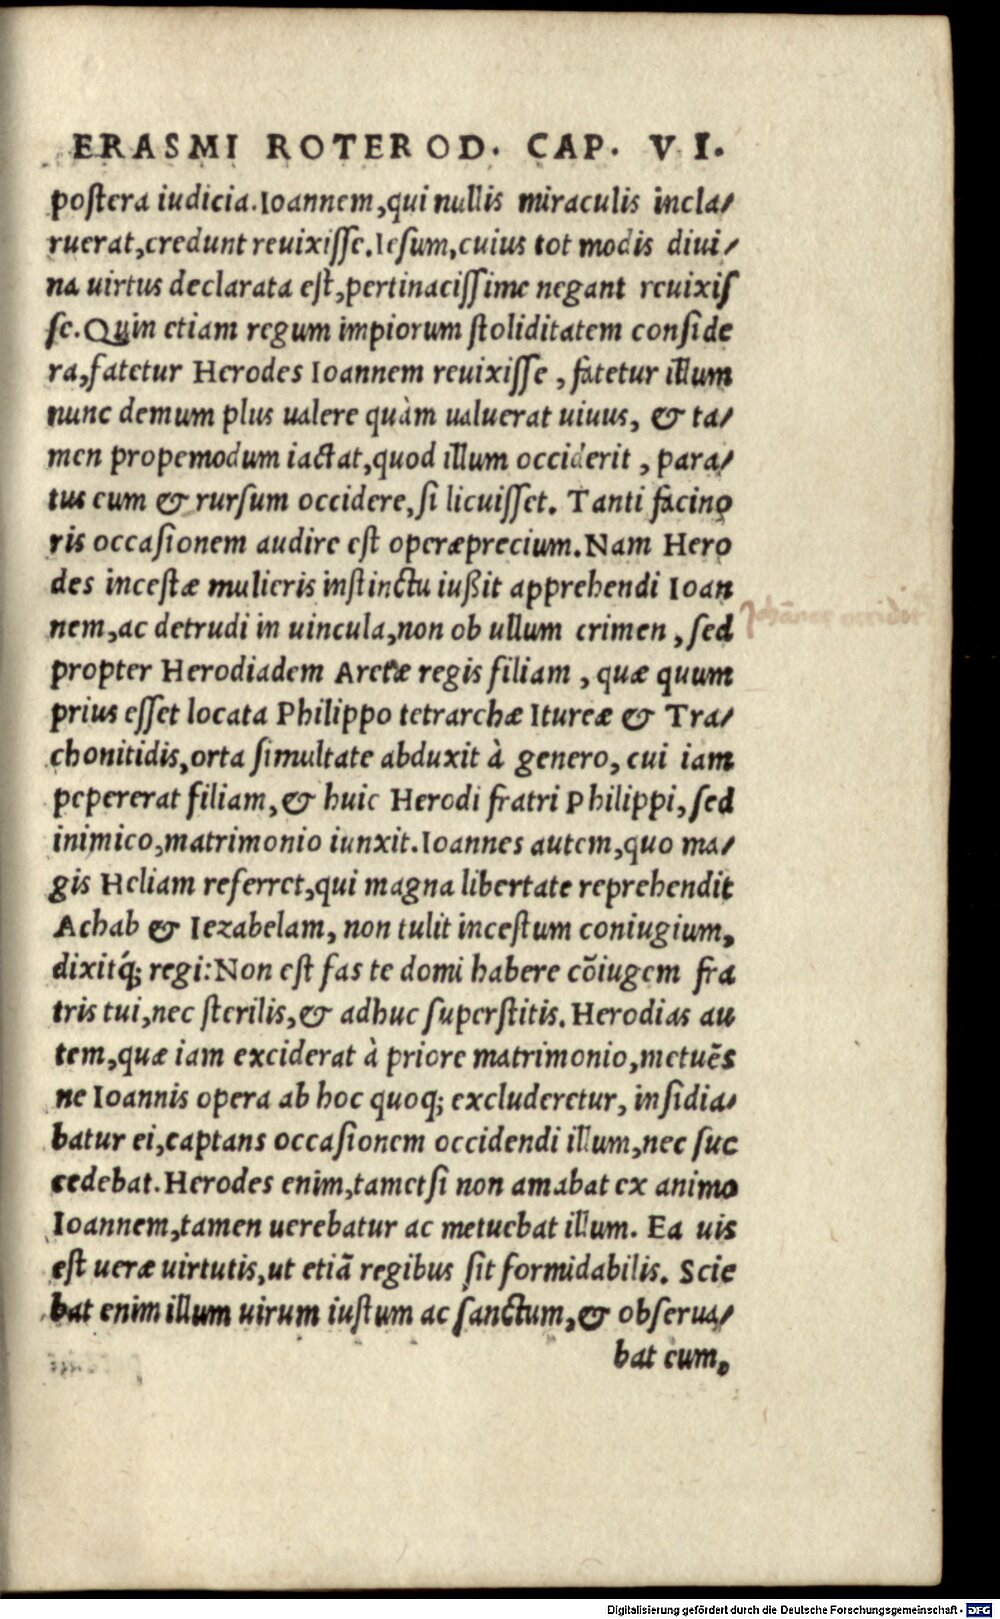 ERASMI ROTEROD. CAP. VI.
postera iudicia. Ioannem, qui nullis miraculis incla/
ruerat, credunt reuixisse. Iesum, cuius tot modis diui/
na uirtus declarata est, pertinacissime negant reuixis
se. Quin etiam regum impiorum stoliditatem conside
ra, fatetur Herodes Ioannem reuixisse, fatetur illum
nunc demum plus ualere quàm ualuerat uiuus, & ta/
men propemodum iactat, quod illum occiderit, para/
tus eum & rursum occidere, si licuisset. Tanti facino
ris occasionem audire est operæprecium. Nam Hero
des incestæ mulieris instinctu iußit apprehendi Ioan
nem, ac detrudi in uincula, non ob ullum crimen, sed
propter Herodiadem Aretæ regis filiam, quæ quum
prius esset locata Philippo tetrarchæ Itureæ & Tra/
chonitidis, orta simultate abduxit à genero, cui iam
pepererat filiam, & huic Herodi fratri Philippi, sed
inimico, matrimonio iunxit. Ioannes autem, quo ma/
gis Heliam referret, qui magna libertate reprehendit
Achab & Iezabelam, non tulit incestum coniugium,
dixitq́; regi: Non est fas te domi habere cõiugem fra
tris tui, nec sterilis, & adhuc superstitis. Herodias au
tem, quæ iam exciderat à priore matrimonio, metuẽs
ne Ioannis opera ab hoc quoq; excluderetur, insidia/
batur ei, captans occasionem occidendi illum, nec suc
cedebat. Herodes enim, tametsi non amabat ex animo
Ioannem, tamen uerebatur ac metuebat illum. Ea uis
est ueræ uirtutis, ut etiã regibus sit formidabilis. Scie
bat enim illum uirum iustum ac sanctum, & obserua/
bat eum,
Digitalisierung gefördert durch die Deutsche Forschungsgemeinschaft - DFG